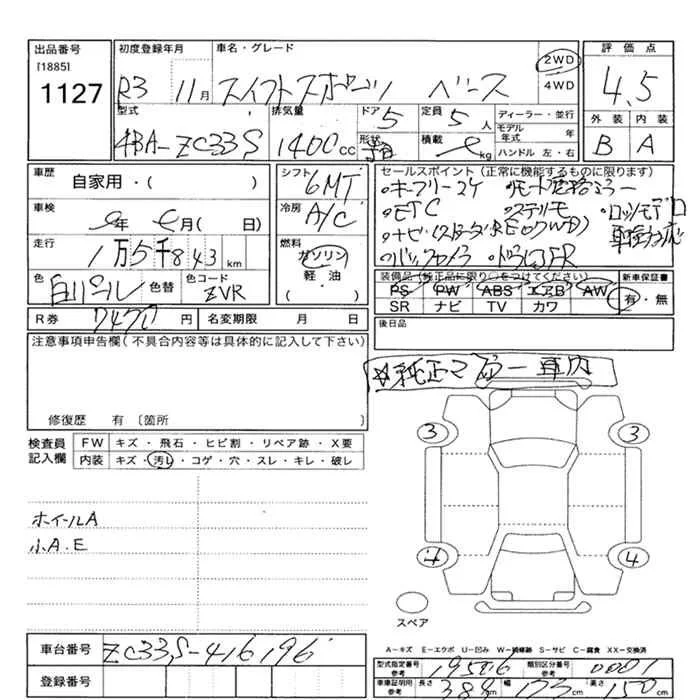 出品番号 初度登録年月 車名・グレード 評価点
[1885]
1127 R3 11月 スイフトスポーツ ベース 2WD 4WD 4.5
型式 排気量 ドア 5 定員 5人 ディーラー・並行 外装 内装
4BA-ZC33S 1400cc 形状 積載 kg モデル年式 年 B A
ハンドル 左・右
車歴 自家用・( ) シフト 6MT セールスポイント(正常に機能するものに限ります)
・キーフリー
車検 年 月( 日) 冷房 A/C ・ETC
走行 1万5千843km ・ナビ
燃料 ガソリン ・バックカメラ ・ドラレコFR
軽・油
(・)
色 白パール 色替 色コード ZVR
装備品(純正品に限り○をつけてください) 新車保証書
PS PW ABS エアB AW 有・無
SR ナビ TV カワ
R券 7470円 名変期限 月 日 後日品
注意事項申告欄(不具合内容等は具体的に記入して下さい)
☆純正マフラー車内
修復歴 有 〔箇所 〕
検査員記入欄 FW キズ・飛石・ヒビ割・リペア跡・X要
内装 キズ・汚レ・コゲ・穴・スレ・キレ・破レ
3 3
ホイールA
小A.E
4 4
スペア
A-キズ E-エクボ U-凹み W-補修跡 S-サビ C-腐食 XX-交換済
車台番号 ZC33S-416196
型式指定番号 参考 19506 類別区分番号 参考 0001
登録番号
車庫証明用 参考 長さ 389 幅 173 高さ 150